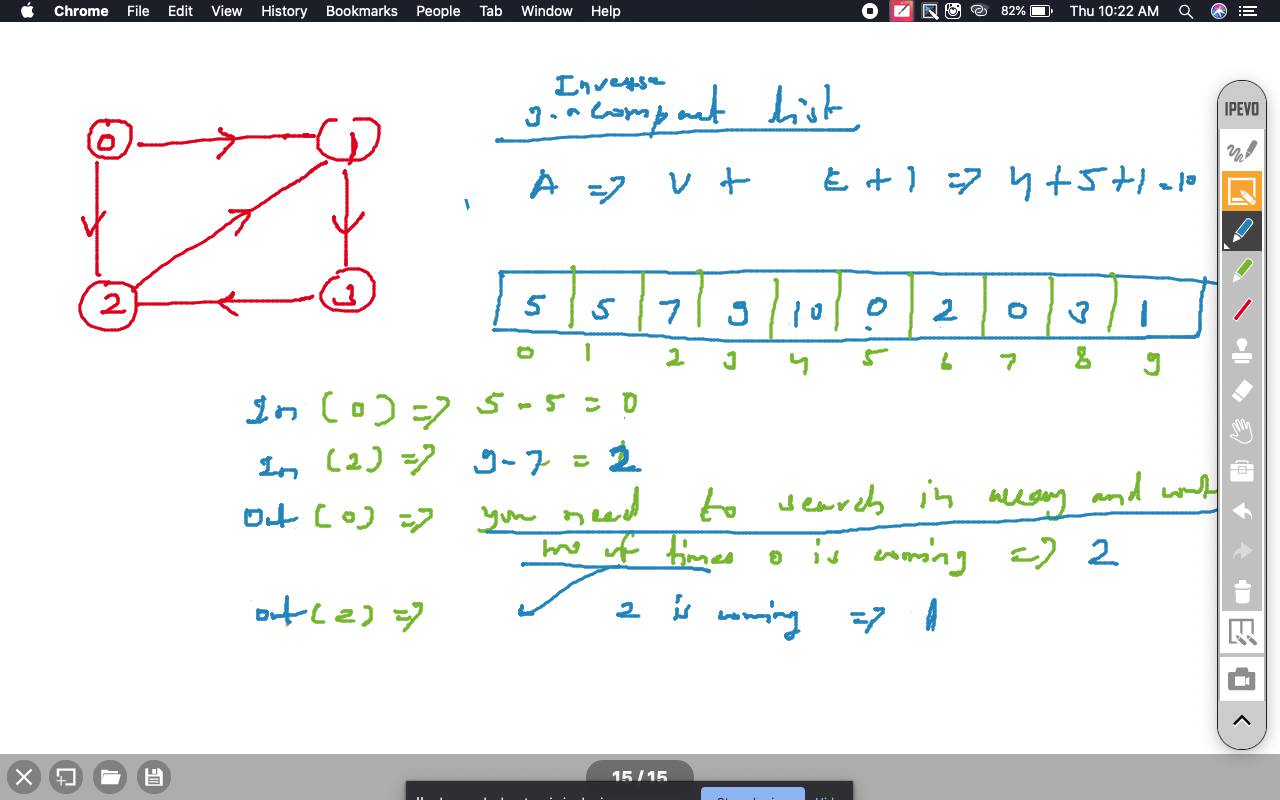 Chrome File Edit View History Bookmarks People Tab Window Help 82% Thu 10:22 AM
IPEVO
Inverse
compact list
A => V + E + 1 => 4 + 5 + 1 = 10
0 1
2 3
5 5 7 9 10 0 2 0 3 1
0 1 2 3 4 5 6 7 8 9
In (0) => 5 - 5 = 0
In (2) => 9 - 7 = 2
Out (0) => you need to search in array and
no of times 0 is coming => 2
out (2) => 2 is coming => 1
15 / 15